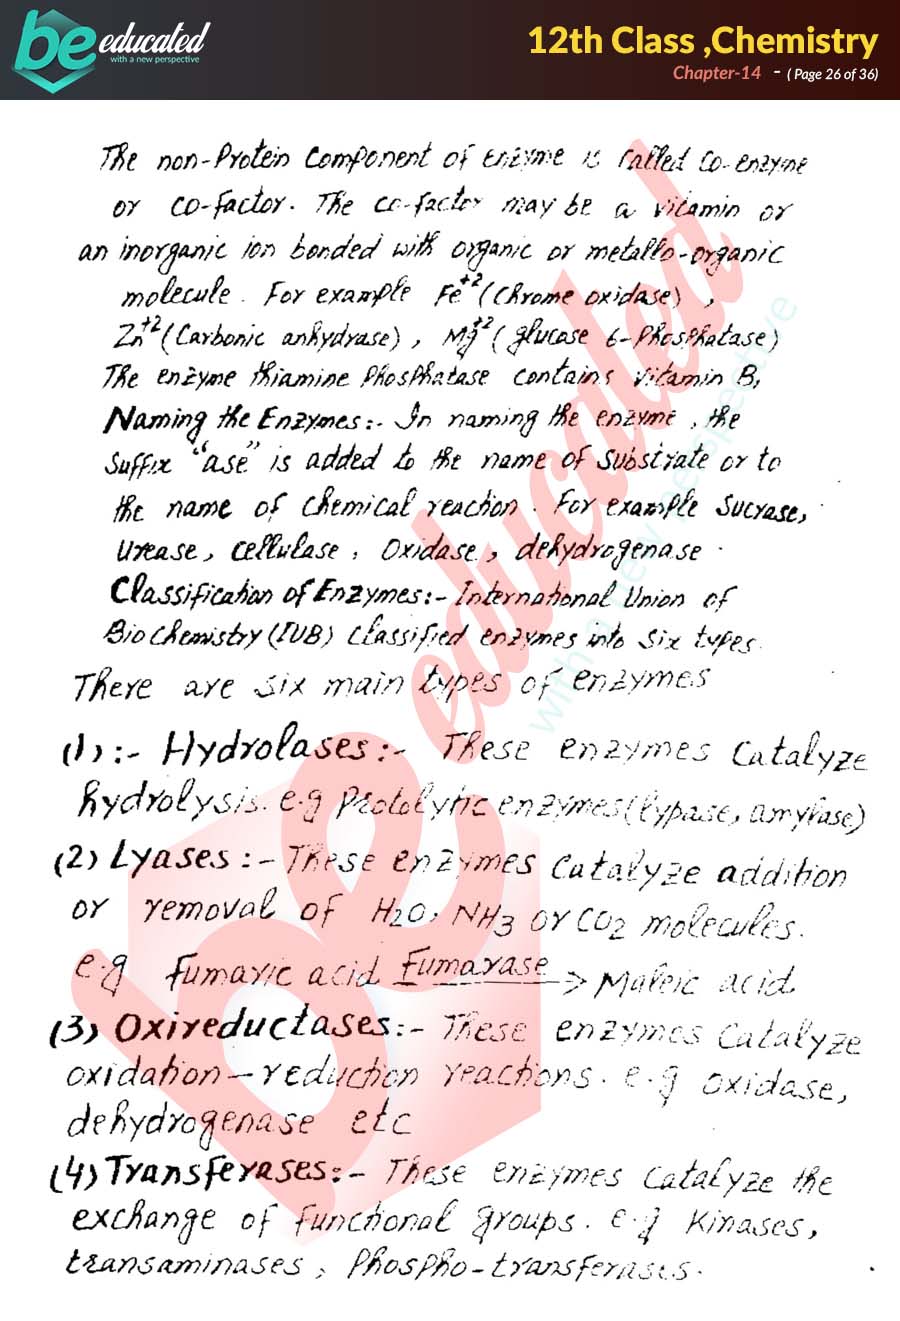 be educated
with a new perspective
12th Class ,Chemistry
Chapter-14 - ( Page 26 of 36)
The non-Protein Component of Enzyme is called Co-enzyme
or co-factor. The co-factor may be a vitamin or
an inorganic ion bonded with organic or metallo-organic
molecule. For example Fe+2 (Chrome oxidase) ,
Zn+2 (Carbonic anhydrase) , Mg+2 ( glucose 6-Phosphatase)
The enzyme thiamine Phosphatase contains vitamin B1
Naming the Enzymes:- In naming the enzyme , the
Suffix "ase" is added to the name of substrate or to
the name of Chemical reaction. For example Sucrase,
Urease, Cellulase, Oxidase, dehydrogenase.
Classification of Enzymes:- International Union of
Biochemistry (IUB) classified enzymes into six types.
There are six main types of enzymes
(1):- Hydrolases:- These enzymes Catalyze
hydrolysis. e.g Protolytic enzymes (lypase, amylase)
(2) Lyases :- These enzymes catalyze addition
or removal of H2O, NH3 or CO2 molecules.
e.g Fumaric acid Fumarase -> Maleic acid.
(3) Oxireductases:- These enzymes Catalyze
oxidation-reduction reactions. e.g oxidase,
dehydrogenase etc
(4) Transferases:- These enzymes Catalyze the
exchange of Functional groups. e.g Kinases,
transaminases, Phospho-transferases.
be educated
with a new perspective